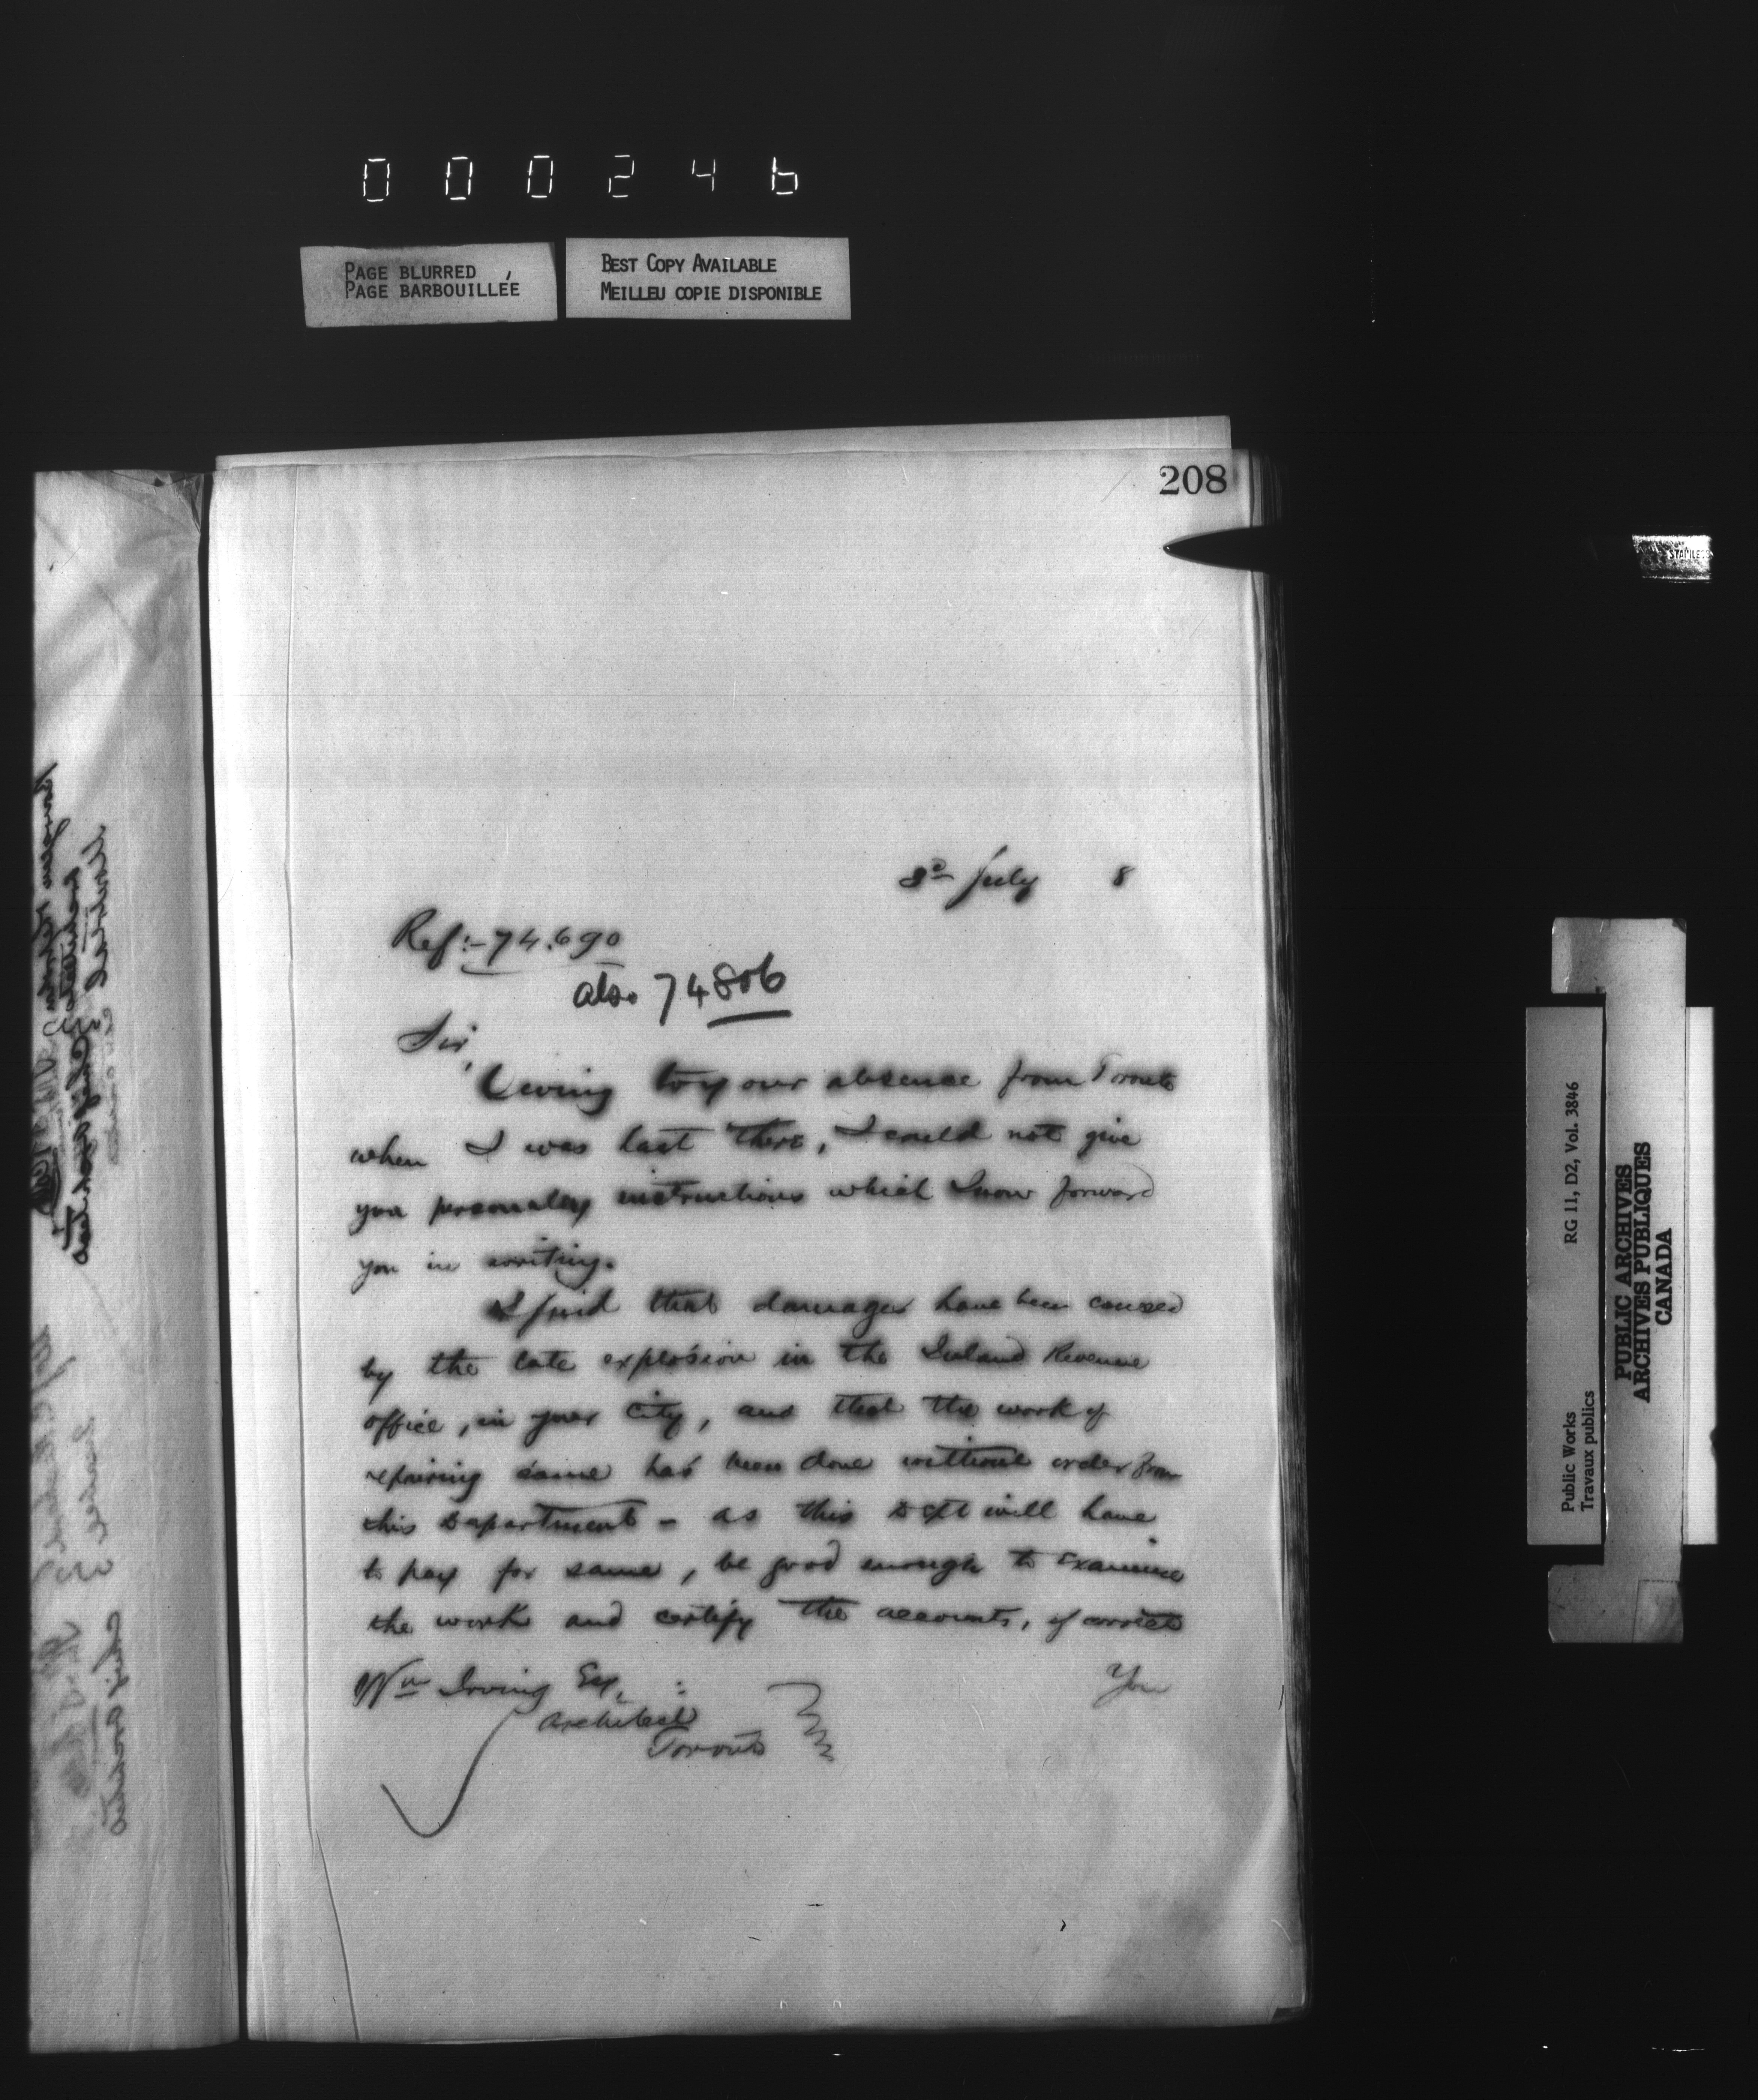 000246
PAGE BLURRED
PAGE BARBOUILLÉE
BEST COPY AVAILABLE
MEILLEU COPIE DISPONIBLE
208
STAINLESS
3d July 8
Ref:- 74.690
also 74806
Sir,
Owing to your absence from Toronto
when I was last there, I could not give
you personaley instructions which I now forward
you in writing.
I find that damages have been caused
by the late explosion in the Inland Revenue
office, in your city, and that the work of
repairing same has been done without order from
this Department - as this Dept will have
to pay for same, be good enough to examine
the work and certify the accounts, if correct
You
Wm Irving Esq.
Architect
Toronto
Public Works
Travaux publics
RG 11, D2, Vol. 3846
PUBLIC ARCHIVES
ARCHIVES PUBLIQUES
CANADA